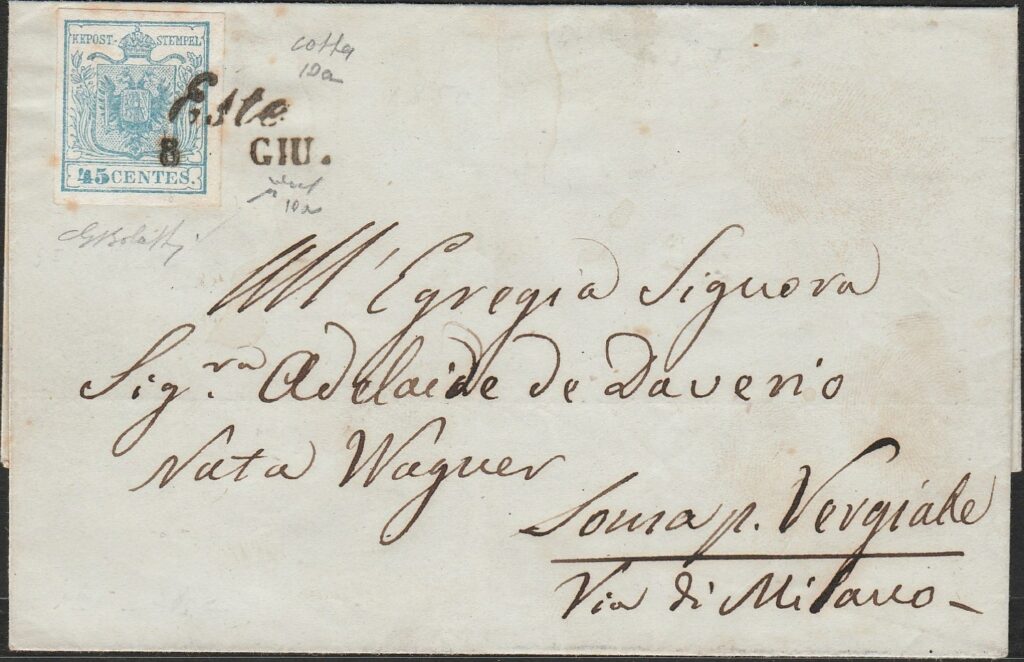 KKPOST-STEMPEL
Este
8 GIU.
45 CENTES.
cotta
10a
10a
GBolaffi
All' Egregia Signora
Sig.ra Adelaide de Daverio
Nata Wagner
Soma p. Vergiate
Via di Milano